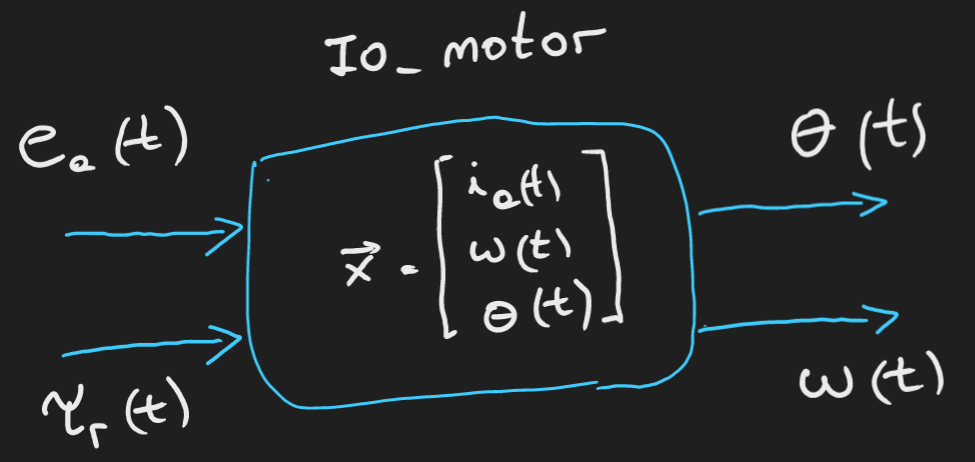 Io_motor
e_a(t)
θ(t)
x⃗ = [i_a(t)
ω(t)
θ(t)]
τ_r(t)
ω(t)